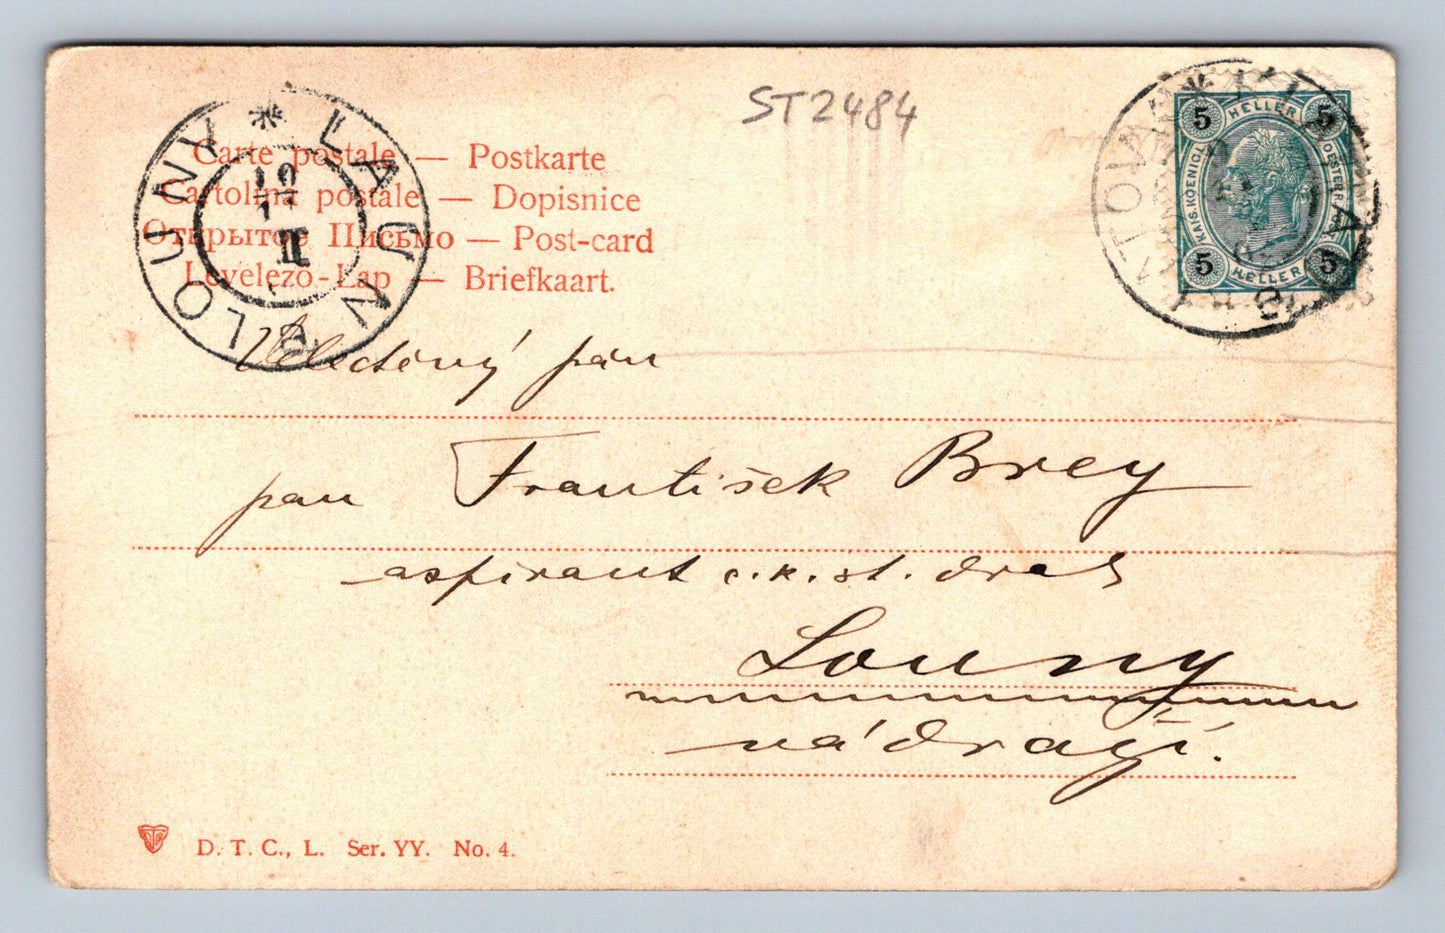 ST2484
Carte postale — Postkarte
Cartolina postale — Dopisnice
Открытое Письмо — Post-card
Levelezö-Lap — Briefkaart.
* LAUN LOUNY
10
II
5 HELLER 5
KAIS. KOENIGL. OESTERR.
5 HELLER 5
Veledtěný pán
pan František Brey
aspirant c.k.st. drah
Louny
nádraží.
D. T. C., L. Ser. YY. No. 4.